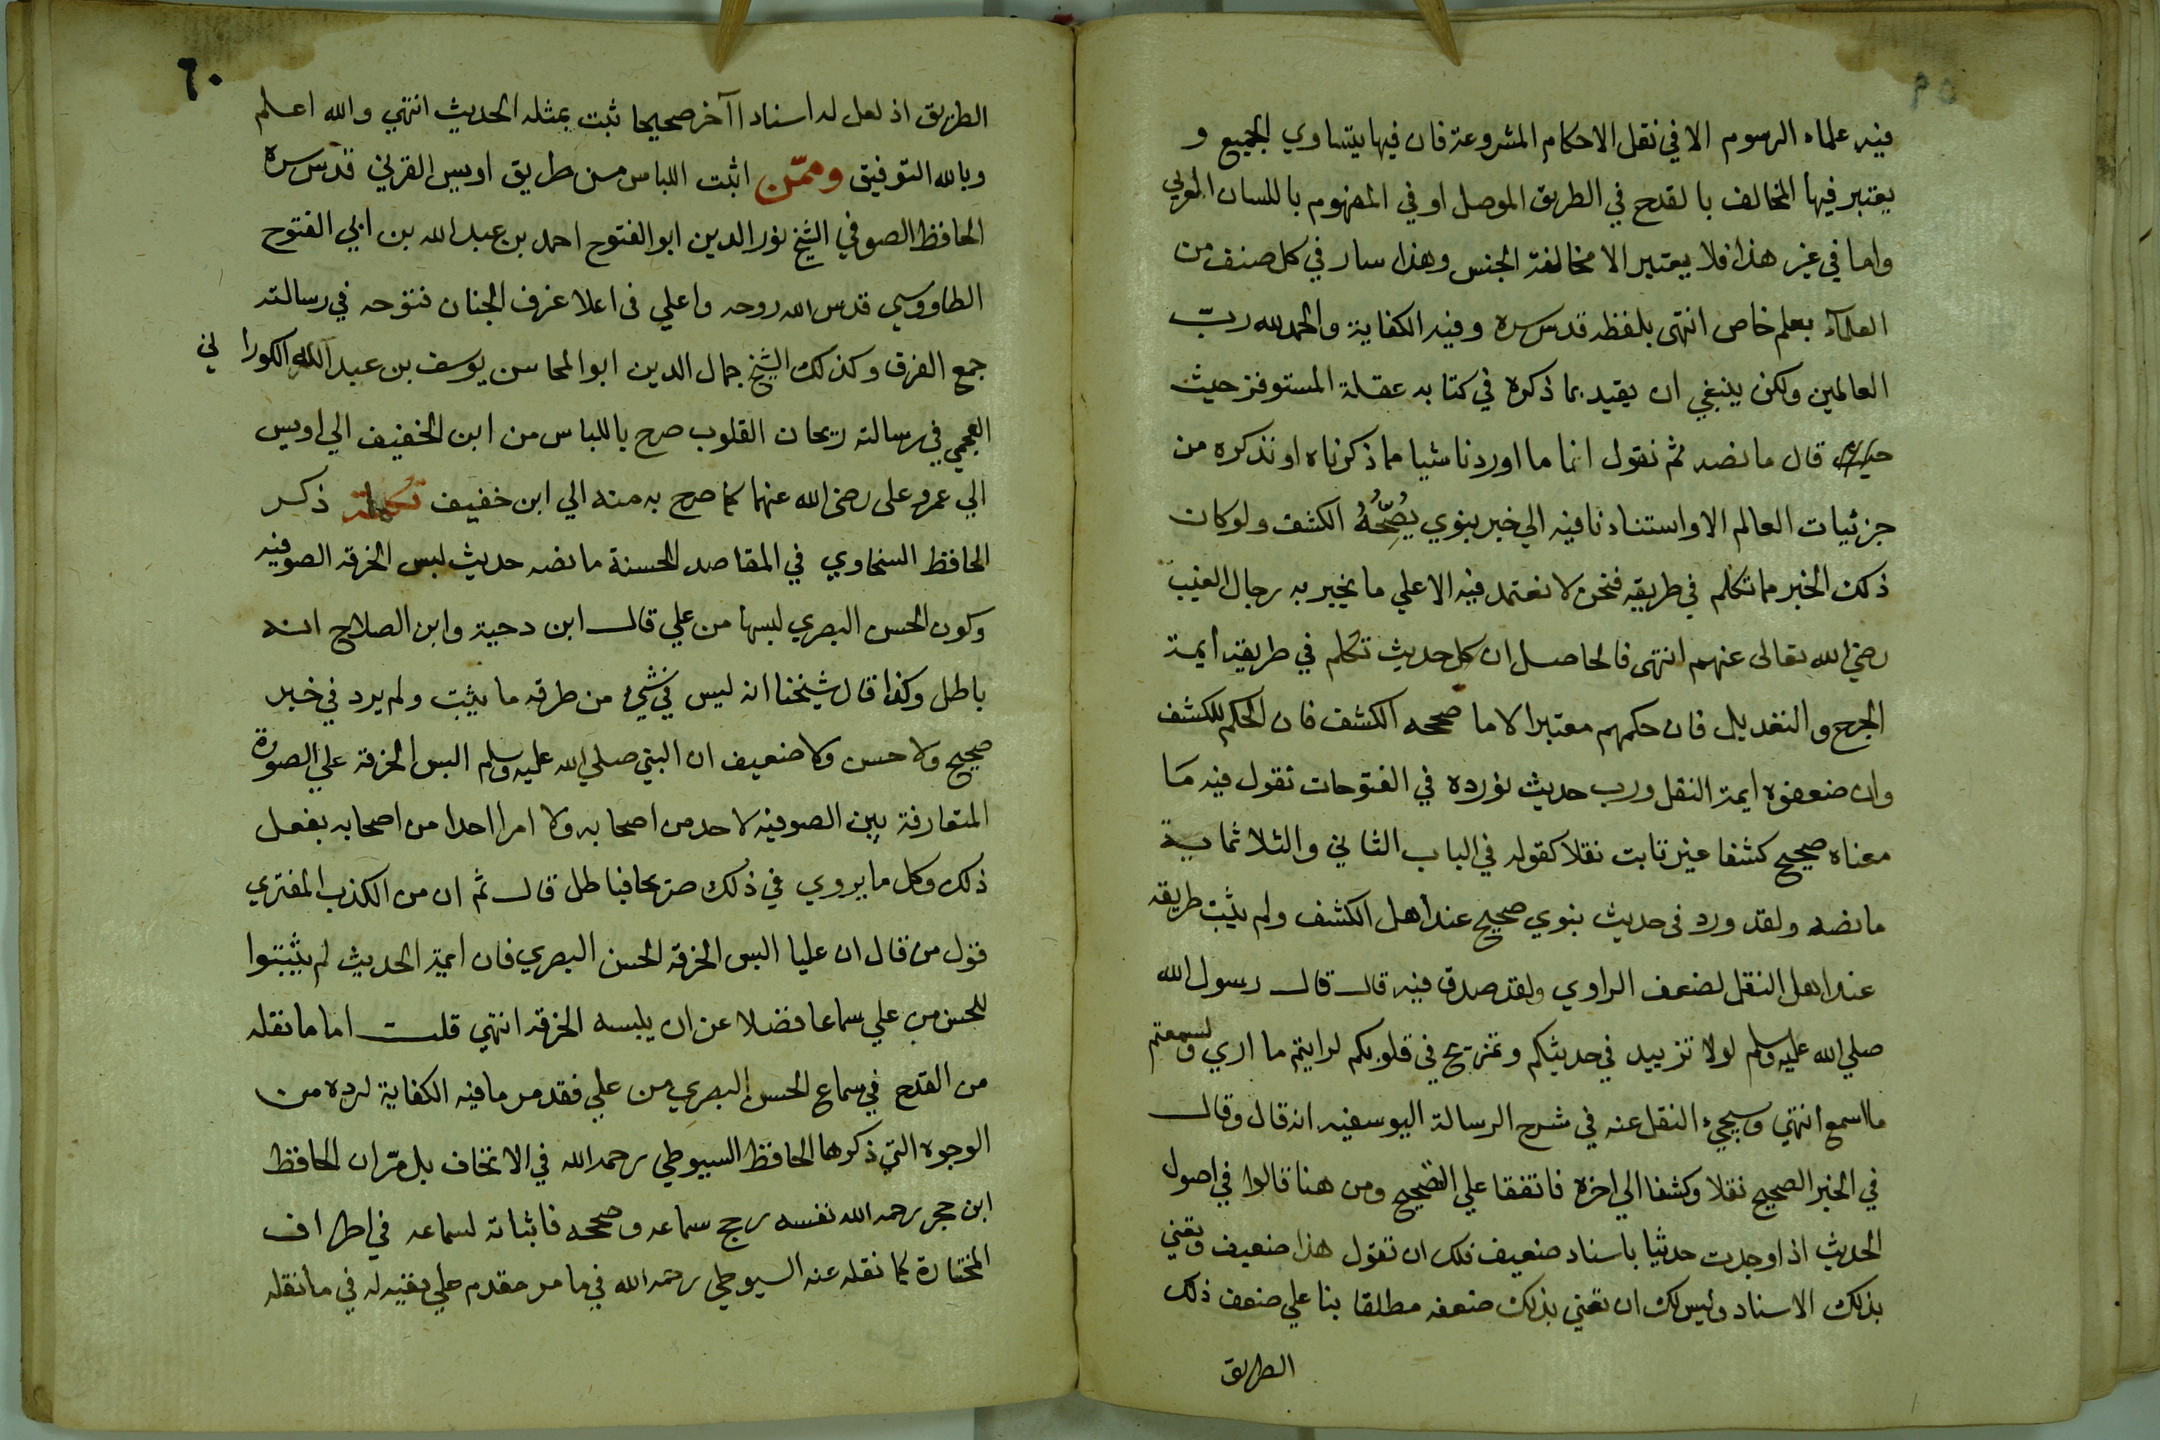 ٥٩
فيه علماء الرسوم الا في نقل الاحكام المشروعة فان فيها يتساوي الجميع و
يعتبر فيها المخالف بالقدح في الطريق الموصل او في المفهوم باللسان العربي
واما في غير هذا فلا يعتبر الا مخالفة الجنس وهذا سار في كل صنف من
العلمآء بعلم خاص انتهى بلفظه قدس سره وفيه الكفاية والحمد لله ربّ
العالمين ولكن ينبغي ان يقيد بما ذكره في كتابه عقلة المستوفز حيث
قال ما نصه ثم نقول انما ما اوردنا شيا مما ذكرناه او نذكره من
جزئيات العالم الا واستنادنا فيه الي خبر نبوي يُصَحِّحُهُ الكشف ولو كان
ذلك الخبر مما تكلم في طريقه فنحن لا نعتمد فيه الا علي ما يخبر به رجال الغيب
رضي الله تعالى عنهم انتهى فالحاصل ان كل حديث تكلم في طريقه ايمة
الجرح والتعديل فان حكمهم معتبر الا ما صححه الكشف فان الحكم للكشف
وان ضعفوه ايمة النقل ورب حديث نورده في الفتوحات نقول فيه مَا
معناه صحيح كشفا غير ثابت نقلا كقوله في الباب الثاني والثلاثماية
ما نصه ولقد ورد في حديث نبوي صحيح عند اهل الكشف ولم يثبت طريقه
عند اهل النقل لضعف الراوي ولقد صدق فيه قال قال رسول الله
صلي الله عليه وسلم لولا تزييد في حديثكم وتمزيج في قلوبكم لرايتم ما اري ولسمعتم
ما اسمع انتهي وسيجيء النقل عنه في شرح الرسالة اليوسفيه انه قال وقال
في الخبر الصحيح نقلا وكشفا الي اخره فاتفقا علي التصحيح ومن هنا قالوا في اصول
الحديث اذا وجدت حديثا باسناد ضعيف فلك ان تقول هذا ضعيف وتعني
بذلك الاسناد وليس لك ان تعني بذلك ضعفه مطلقا بنا علي ضعف ذلك
الطريق
٦٠
الطريق اذ لعل له اسنادا آخر صحيحا ثبت بمثله الحديث انتهي والله اعلم
وبالله التوفيق وممّن اثبت اللباس من طريق اويس القرني قدس سره
الحافظ الصوفي الشيخ نور الدين ابو الفتوح احمد بن عبد الله بن ابي الفتوح
الطاووسي قدس الله روحه واعلي في اعلا غرف الجنان فتوحه في رسالته
جمع الفرق وكذلك الشيخ جمال الدين ابو المحاسن يوسف بن عبد الله الكوراني
العجمي في رسالته ريحان القلوب صرح باللباس من ابن الخفيف الي اويس
الي عمر وعلى رضي الله عنهما كما صرح به منه الي ابن خفيف تكملة ذكر
الحافظ السخاوي في المقاصد الحسنة ما نصه حديث لبس الخرقه الصوفيه
وكون الحسن البصري لبسها من علي قال ابن دحية وابن الصلاح انه
باطل وكذا قال شيخنا انه ليس في شيء من طرقه ما يثبت ولم يرد في خبر
صحيح ولا حسن ولا ضعيف ان النبي صلي الله عليه وسلم البس الخرقة علي الصورة
المتعارفة بين الصوفيه لاحد من اصحابه ولا امر احدا من اصحابه بفعل
ذلك وكل ما يروي في ذلك صريحا فباطل قال ثم ان من الكذب المفتري
قول من قال ان عليا البس الخرقة الحسن البصري فان ايمة الحديث لم يثبتوا
للحسن من علي سماعا فضلا عن ان يلبسه الخرقه انتهي قلت اما ما نقله
من القدح في سماع الحسن البصري من علي فقد مر ما فيه الكفاية لرده من
الوجوه التي ذكرها الحافظ السيوطي رحمه الله في الاتحاف بل مرّ ان الحافظ
ابن حجر رحمه الله نفسه رجح سماعه وصححه فاثباته لسماعه في اطراف
المختارة كما نقله عنه السيوطي رحمه الله في ما مر مقدم علي نفيه له في ما نقله